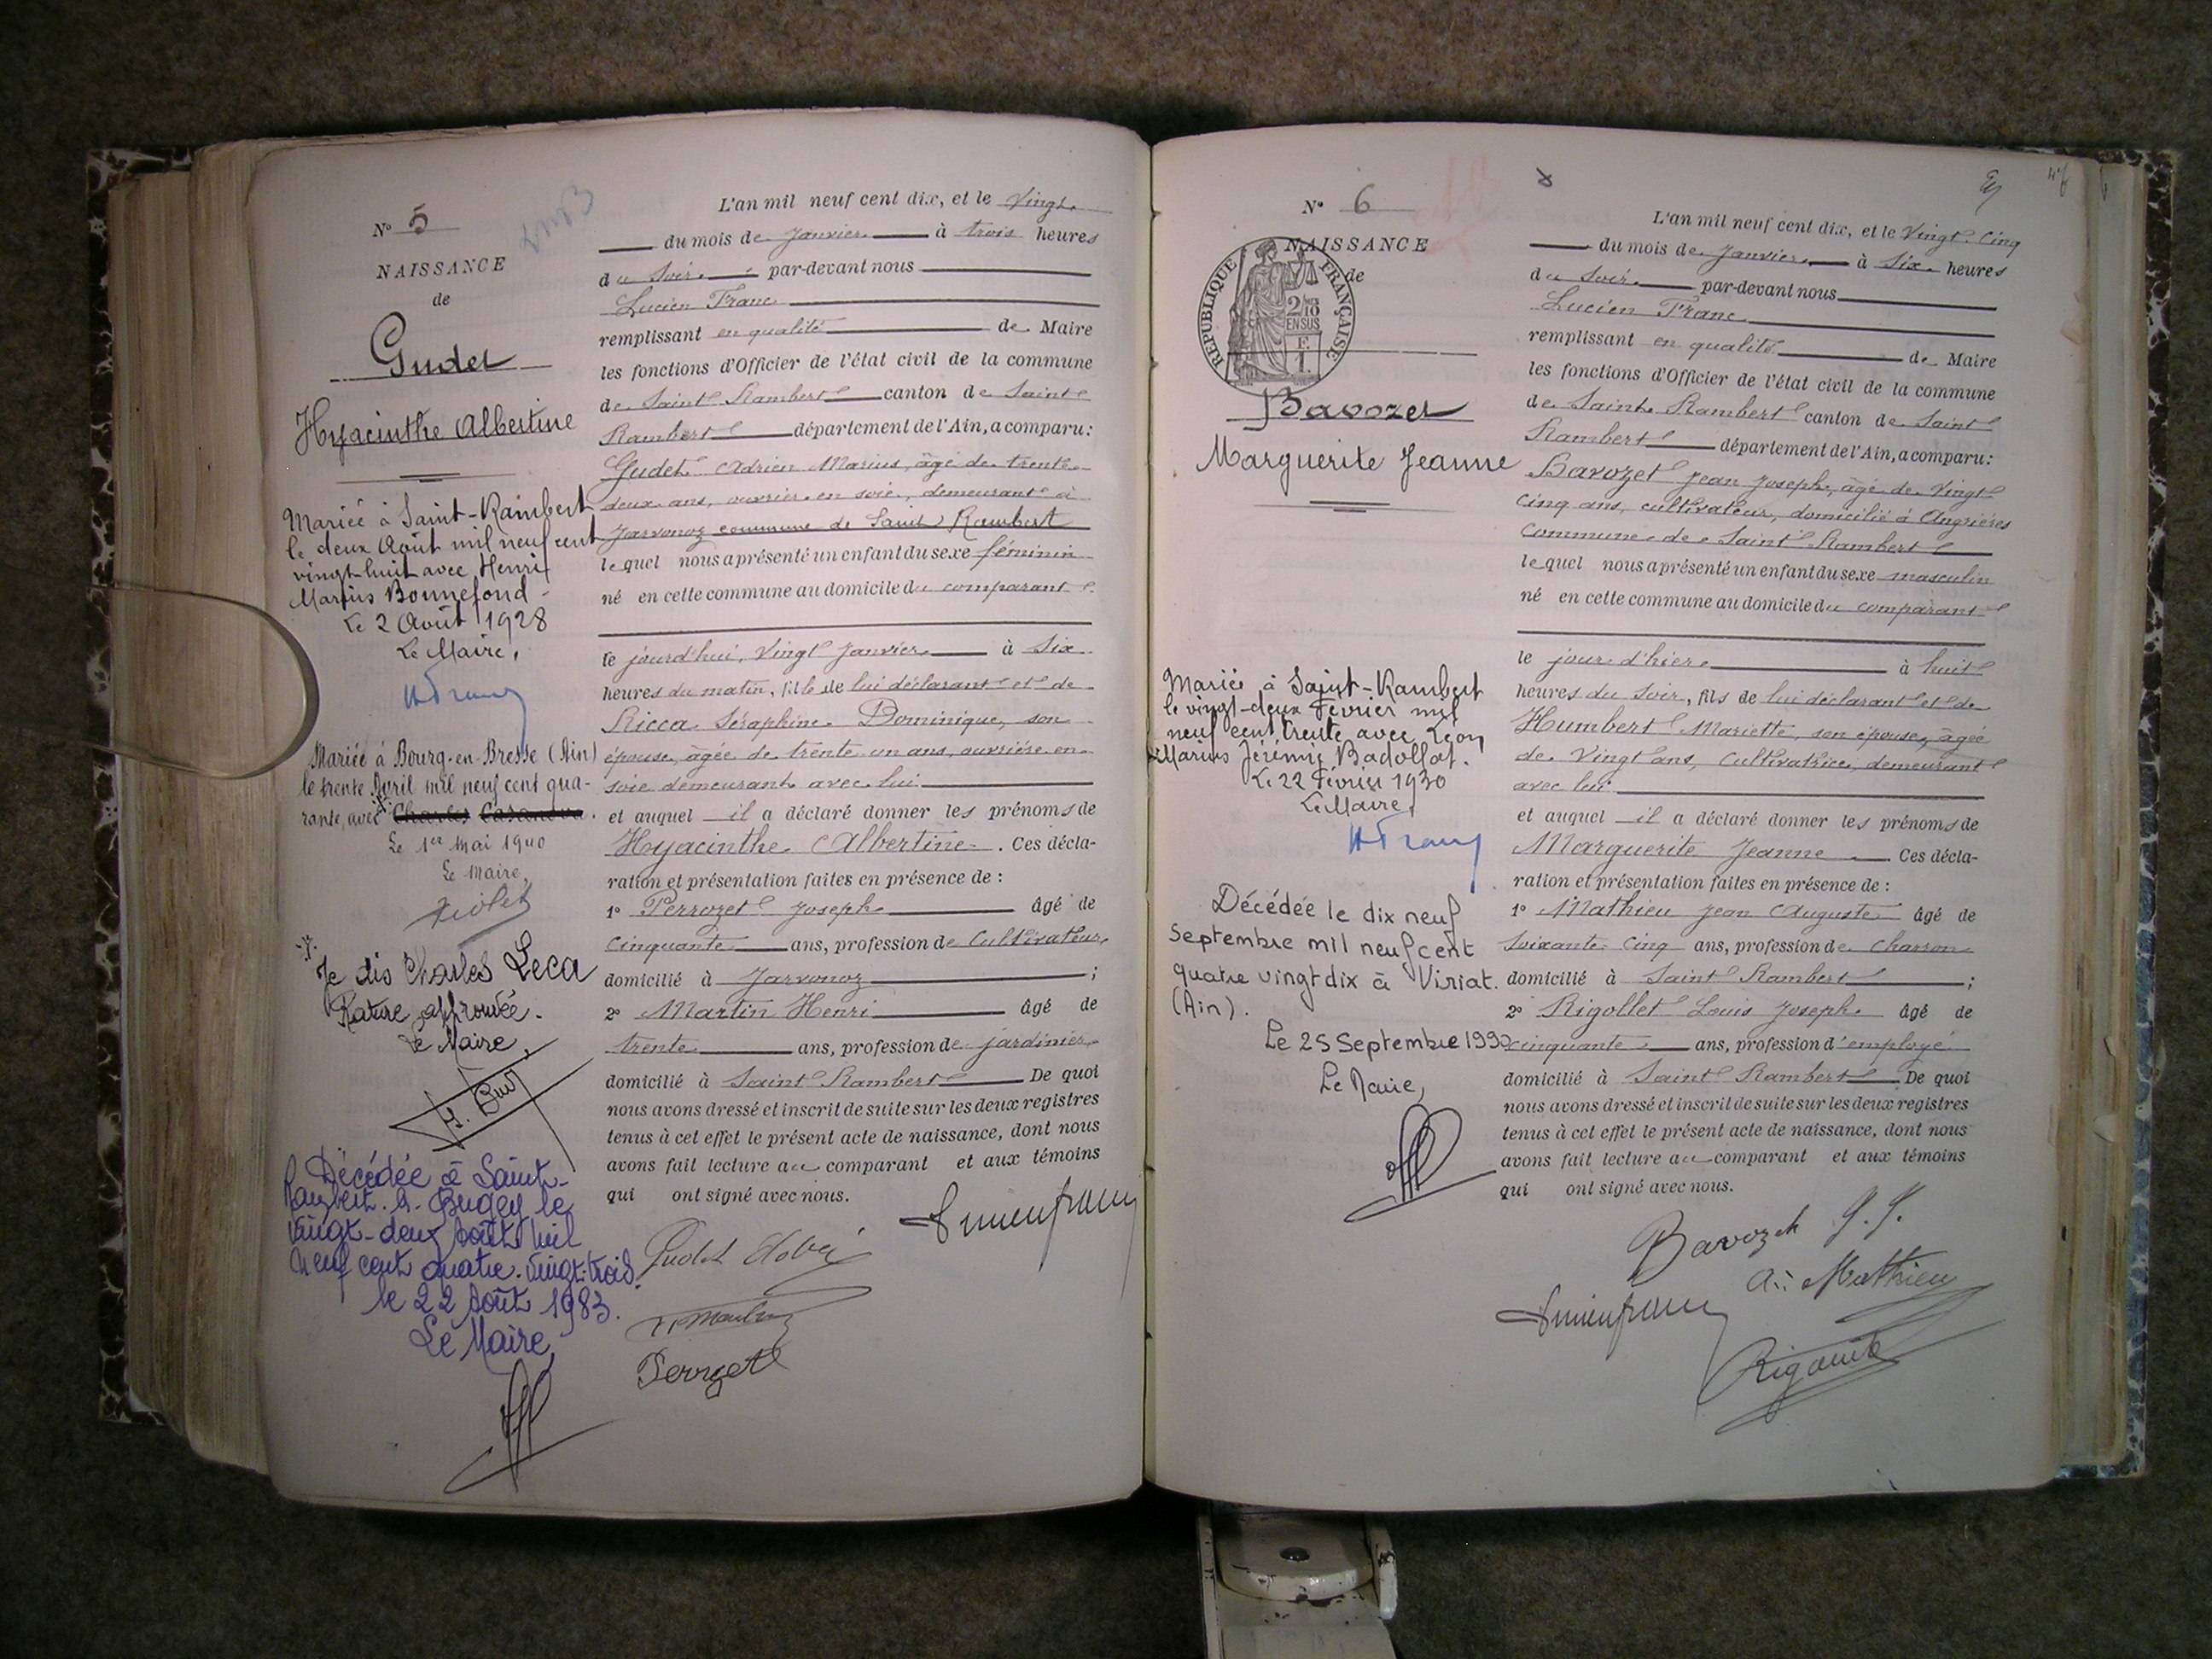 N° 5
NAISSANCE
de
Gudet
Hyacinthe Albertine
Mariée à Saint-Rambert
le deux Août mil neuf cent
vingt huit avec Henri
Marius Bonnefond -
Le 2 Août 1928
Le Maire,
Mariée à Bourg-en-Bresse (Ain)
le trente Avril mil neuf cent qua-
rante, avec Charles Casanova.
Le 1er Mai 1940
Le Maire,
Je dis Charles Leca
Rature approuvée.
Le Maire,
Décédée à Saint-
Rambert-en-Bugey le
vingt-deux Août mil
neuf cent quatre-vingt-trois.
le 22 Août 1983.
Le Maire,
L'an mil neuf cent dix, et le Vingt
du mois de Janvier à trois heures
du Soir par-devant nous
Lucien Franc
remplissant en qualité de Maire
les fonctions d'Officier de l'état civil de la commune
de Saint Rambert canton de Saint
Rambert département de l'Ain, a comparu:
Gudet Adrien Marius, âgé de trente
deux ans, ouvrier en soie, demeurant à
Javonoz commune de Saint Rambert
lequel nous a présenté un enfant du sexe féminin
né en cette commune au domicile du comparant
le jourd'hui, Vingt Janvier à Six
heures du matin, fille de lui déclarant et de
Ricca Séraphine Dominique, son
épouse, âgée de trente un ans, ouvrière en
soie demeurant avec lui
et auquel il a déclaré donner les prénoms de
Hyacinthe Albertine . Ces décla-
ration et présentation faites en présence de :
1° Perrozet Joseph âgé de
Cinquante ans, profession de Cultivateur
domicilié à Jarvonoz ;
2° Martin Henri âgé de
trente ans, profession de jardinier
domicilié à Saint Rambert De quoi
nous avons dressé et inscrit de suite sur les deux registres
tenus à cet effet le présent acte de naissance, dont nous
avons fait lecture au comparant et aux témoins
qui ont signé avec nous.
Gudet
N° 6
NAISSANCE
de
RÉPUBLIQUE FRANÇAISE
2/10
EN SUS
F.
1.
Bavozet
Marguerite Jeanne
Mariée à Saint-Rambert
le vingt-deux Février mil
neuf cent trente avec Léon
Marius Jérémie Badollat.
Le 22 Février 1930
Le Maire,
Décédée le dix neuf
Septembre mil neuf cent
quatre vingt dix à Viriat.
(Ain).
Le 25 Septembre 1990
Le Maire,
L'an mil neuf cent dix, et le Vingt-Cinq
du mois de Janvier à Six heures
du Soir par-devant nous
Lucien Franc
remplissant en qualité de Maire
les fonctions d'Officier de l'état civil de la commune
de Saint Rambert canton de Saint
Rambert département de l'Ain, a comparu:
Bavozet Jean Joseph, âgé de Vingt
Cinq ans, cultivateur, domicilié à Angrières
Commune de Saint Rambert
lequel nous a présenté un enfant du sexe masculin
né en cette commune au domicile du comparant
le jour d'hier à huit
heures du Soir, fils de lui déclarant et de
Humbert Mariette, son épouse, âgée
de Vingt ans, Cultivatrice, demeurant
avec lui
et auquel il a déclaré donner les prénoms de
Marguerite Jeanne Ces décla-
ration et présentation faites en présence de :
1° Mathieu Jean Auguste âgé de
Soixante-Cinq ans, profession de Charron
domicilié à Saint Rambert ;
2° Rigollet Louis Joseph âgé de
cinquante ans, profession d'employé
domicilié à Saint Rambert De quoi
nous avons dressé et inscrit de suite sur les deux registres
tenus à cet effet le présent acte de naissance, dont nous
avons fait lecture au comparant et aux témoins
qui ont signé avec nous.
Bavozet J. J.
Mathieu